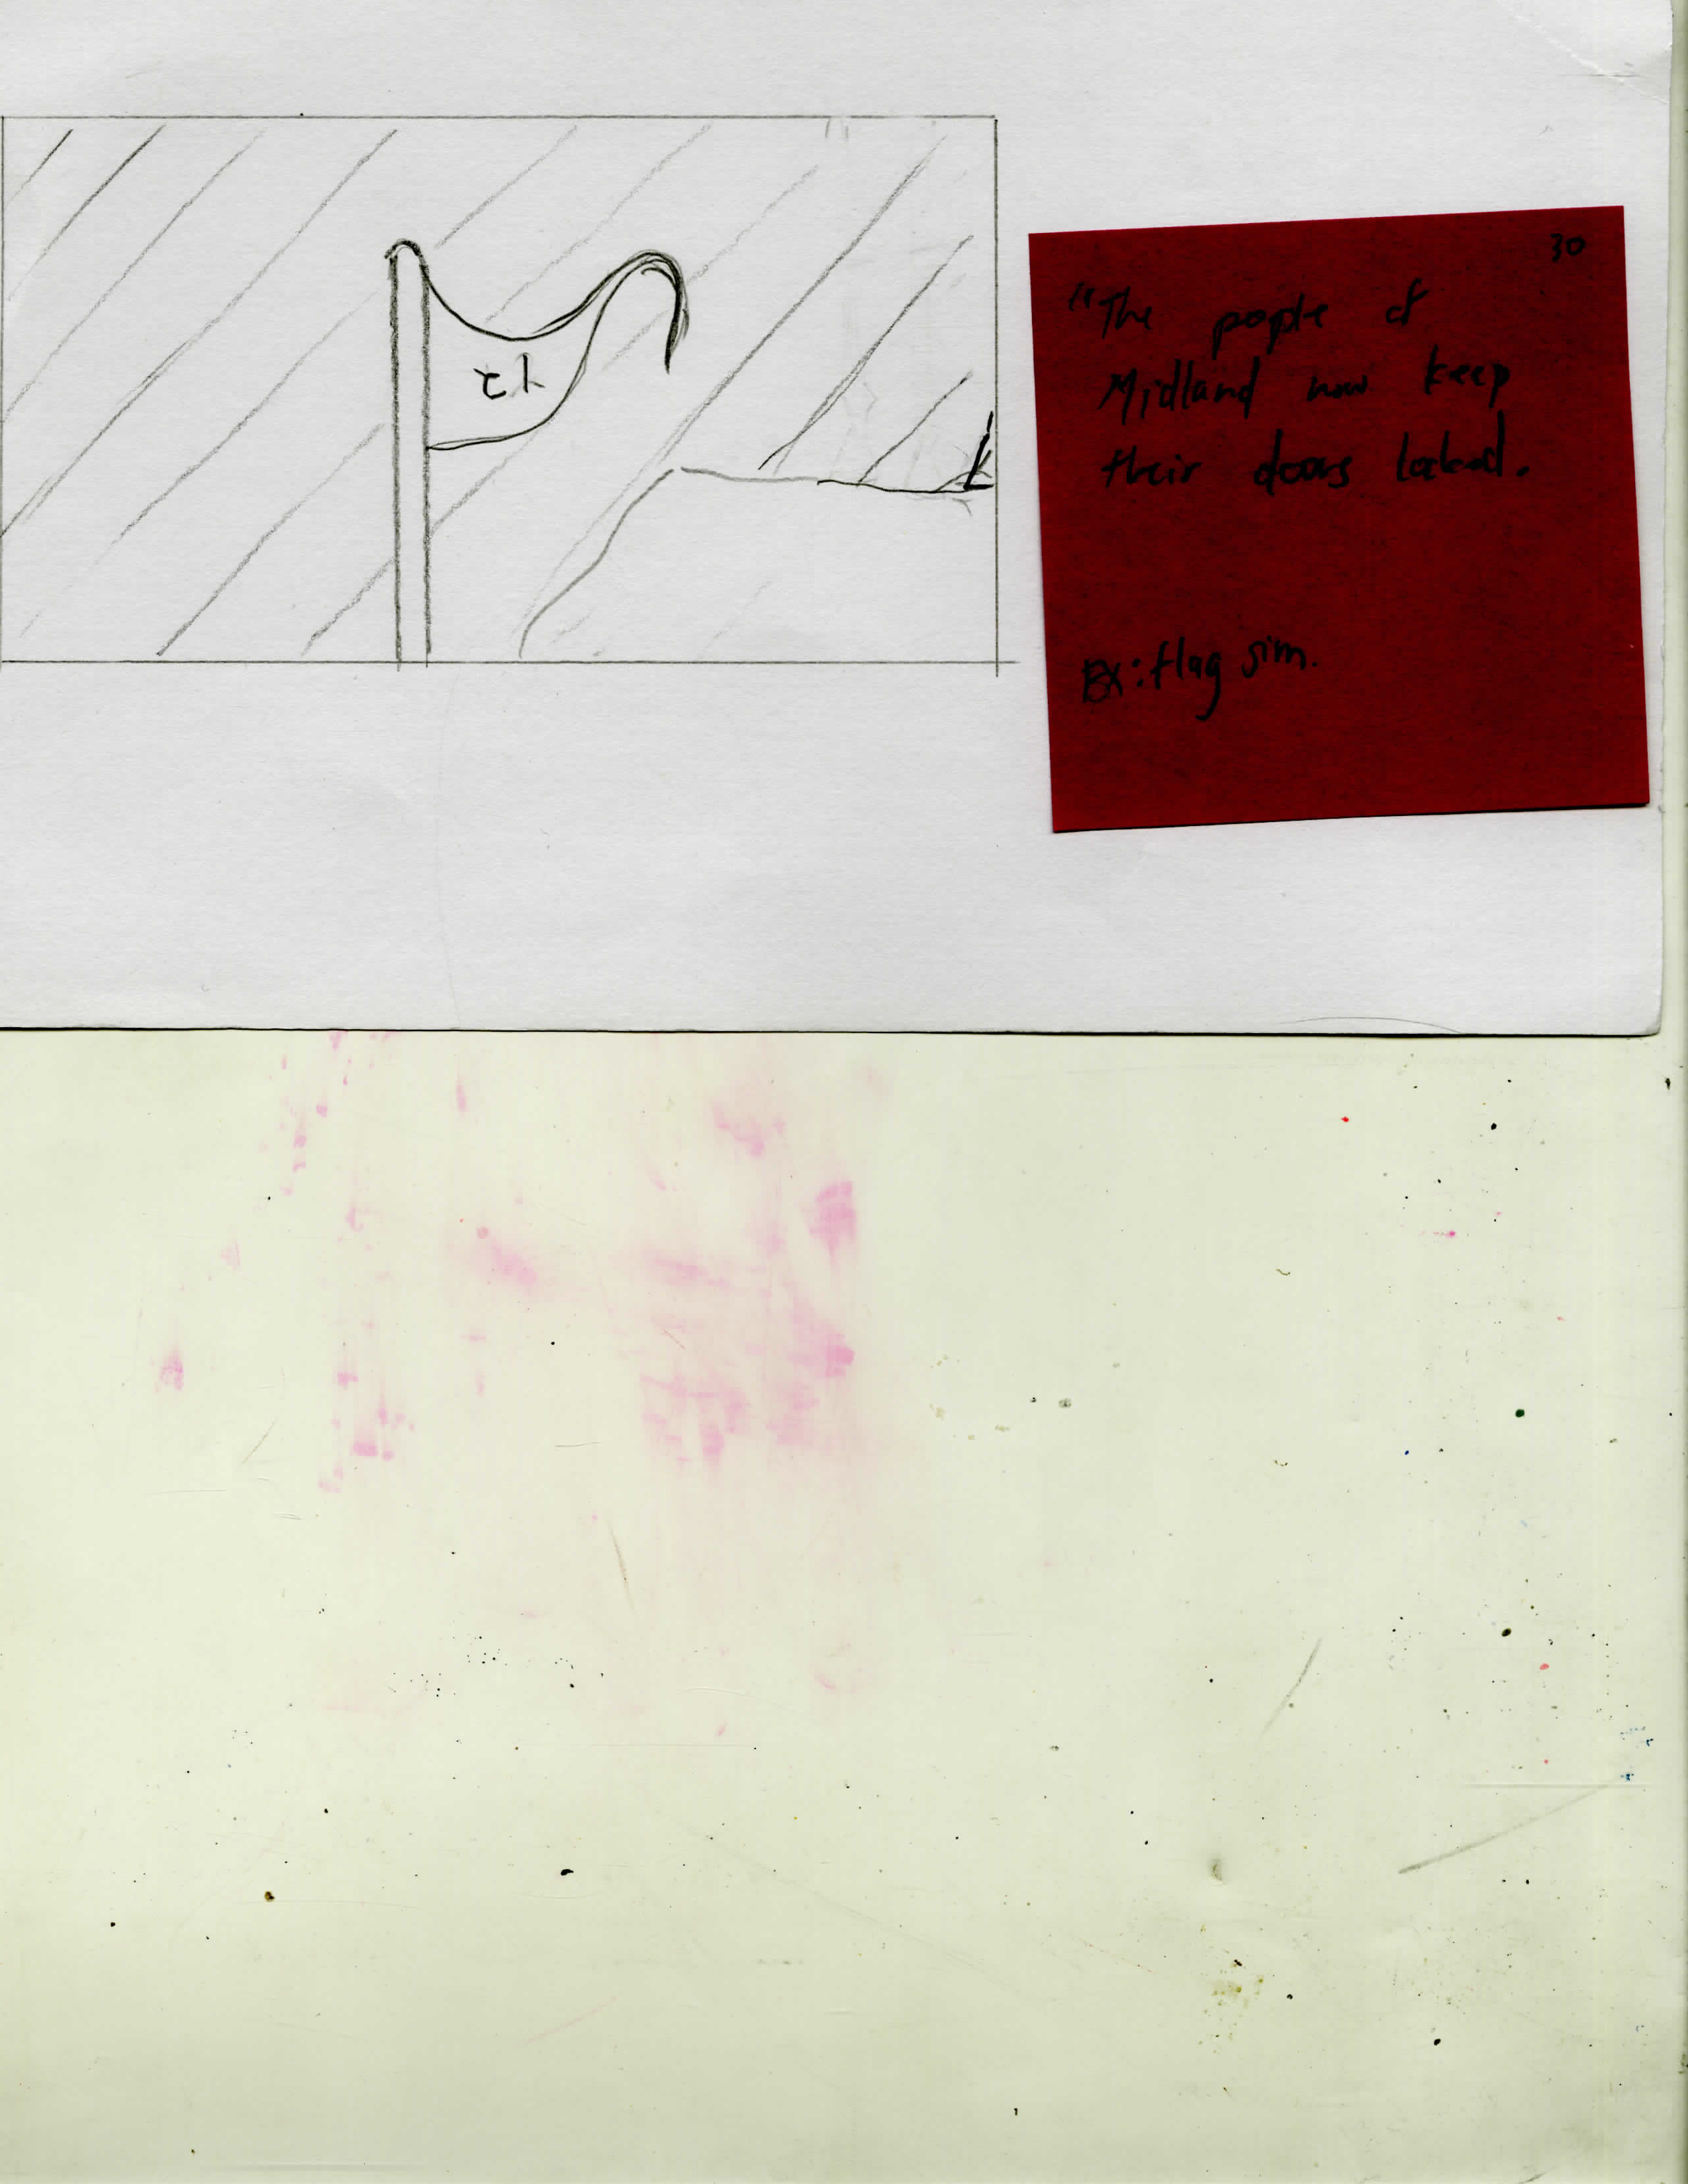 30
"The people of
Midland now keep
their doors locked.
EX: flag sim.